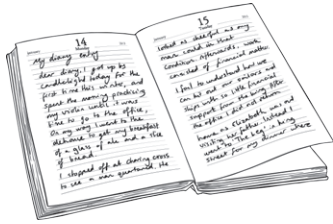 14
Monday
My diary entry
dear diary, I got up by
candlelight today for the
first time this winter, and
spent the morning practising
my violin until it was
time to go to the office.
On my way I went to the
to get my breakfast
of a glass of ale and a slice
of bread.
I stopped off at charing cross
to see a man quartered. He
15
Tuesday
looked as cheerful as my
man could in that
condition. Afterwards, work
consisted of financial matters.
I fail to understand how we
can send out our sailors and
ships with so little financial
support from the king. After
the office I did not return
home as Elizabeth was out
visiting her father. Indeed I
went to 'The Key' in king
street for my dinner where